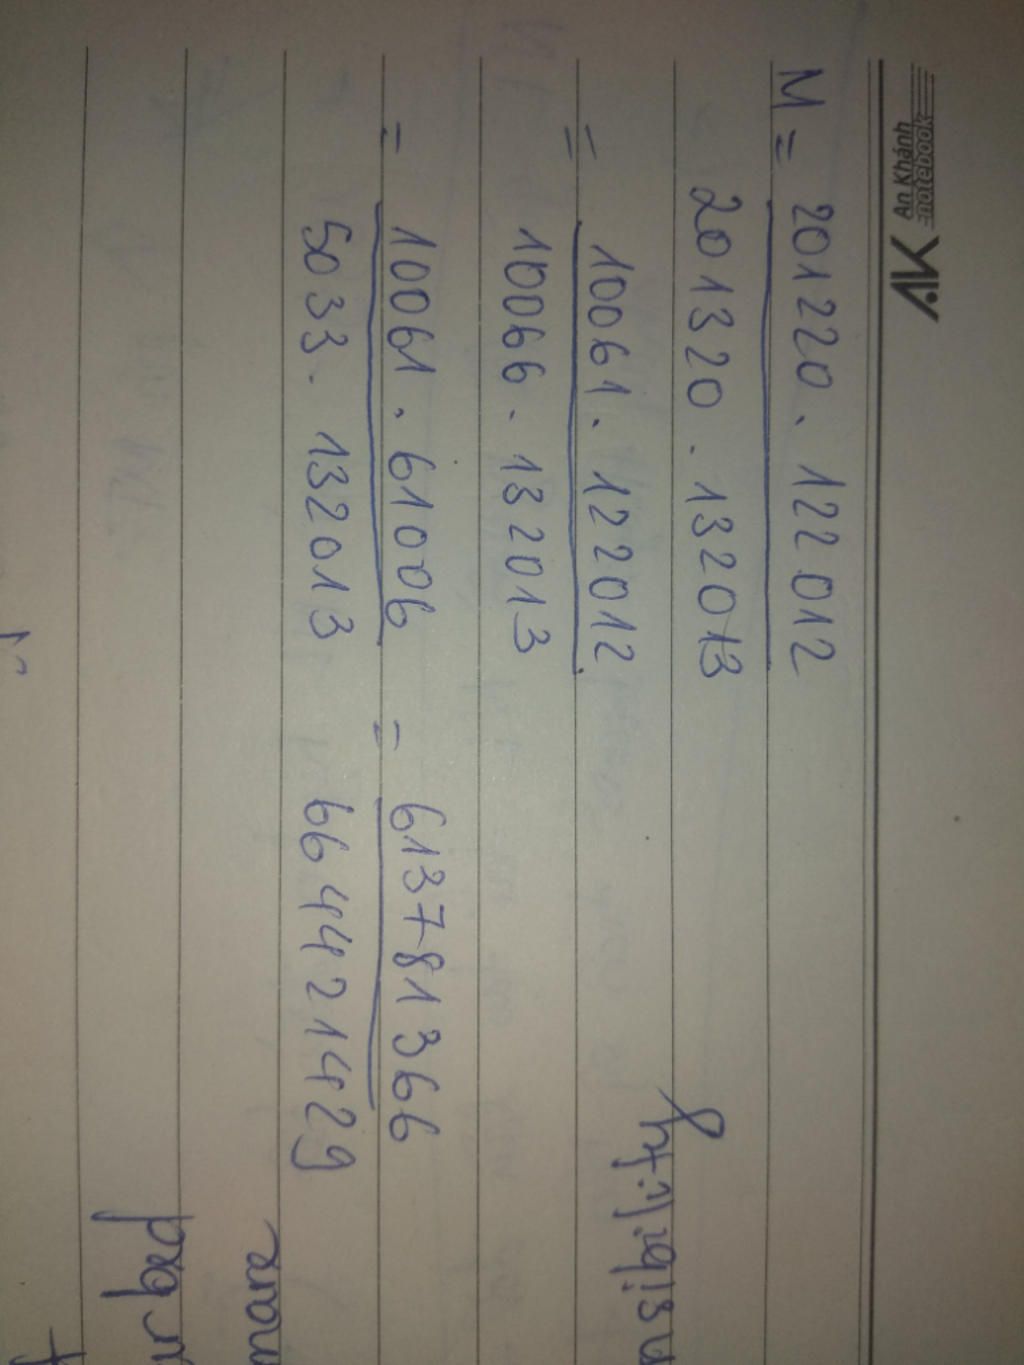 AK An Khánh
notebook
M = 201220 . 122012
201320 . 132013
= 10061 . 122012
10066 . 132013
= 10061 . 61006 = 613781366
5033 . 132013 664421429